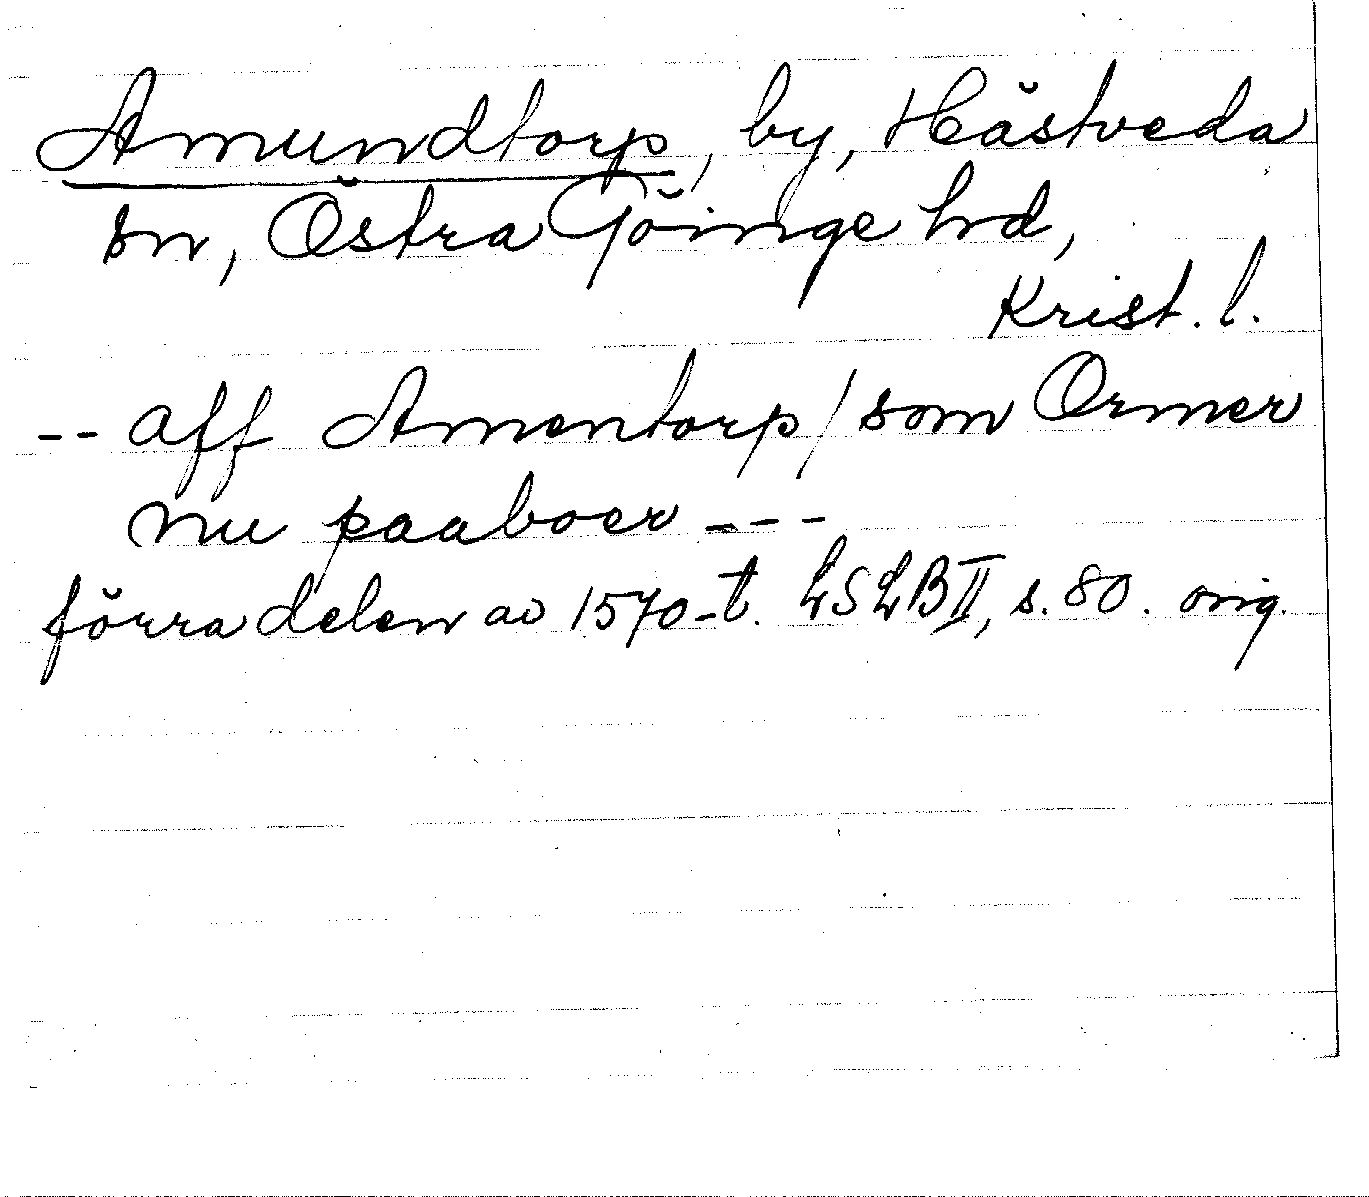 Amundtorp, by, Hästveda
sn, Östra Göinge hd,
Krist. l.
-- aff Amentorp / som Ormer
nu paaboer ---
förra delen av 1570-t. LSLB II, s. 80. orig.